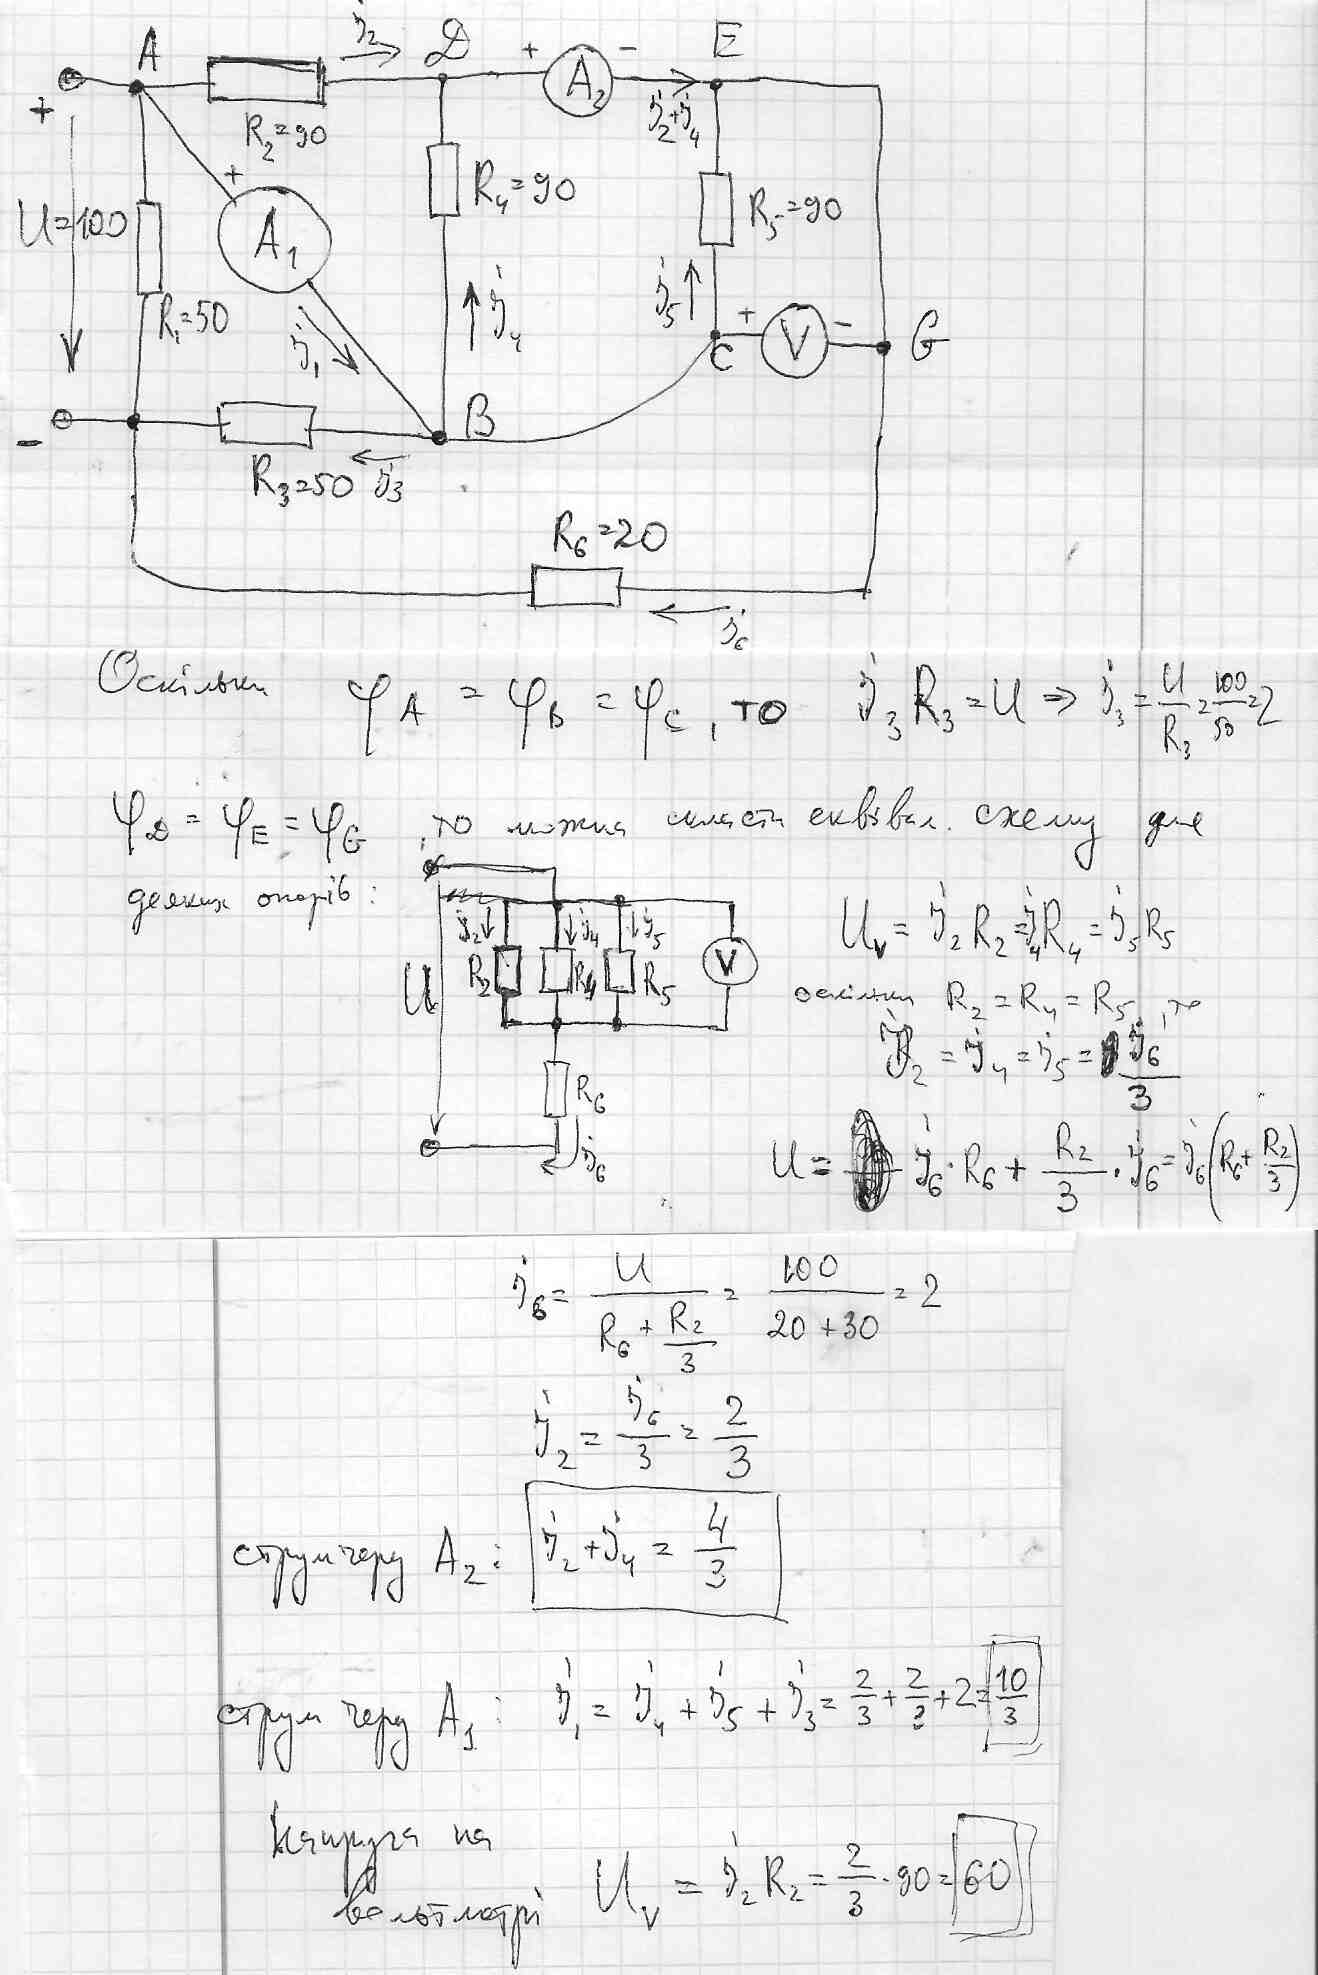 A
R₂=90
j₂
D
+ A₂ −
j₂+j₄
E
+
U=100
R₁=50
+
A₁
j₁
R₄=90
j₄
R₅=90
j₅
C
+ V −
G
−
R₃=50
j₃
B
R₆=20
j₆
Оскільки φA = φB = φC, то j₃R₃=U ⇒ j₃ = U/R₃ = 100/50 = 2
φD = φE = φG, то можна скласти еквівал. схему для
деяких опорів:
U
j₂ j₄ j₅
R₂ R₄ R₅ V
R₆
j₆
Uv = j₂R₂ = j₄R₄ = j₅R₅
оскільки R₂ = R₄ = R₅, то
j₂ = j₄ = j₅ = j₆/3
U = j₆·R₆ + R₂/3 · j₆ = j₆(R₆ + R₂/3)
j₆ = U/(R₆ + R₂/3) = 100/(20+30) = 2
j₂ = j₆/3 = 2/3
струм через A₂: j₂+j₄ = 4/3
струм через A₁: j₁ = j₄ + j₅ + j₃ = 2/3 + 2/3 + 2 = 10/3
Напруга на
вольтметрі Uv = j₂R₂ = 2/3 · 90 = 60